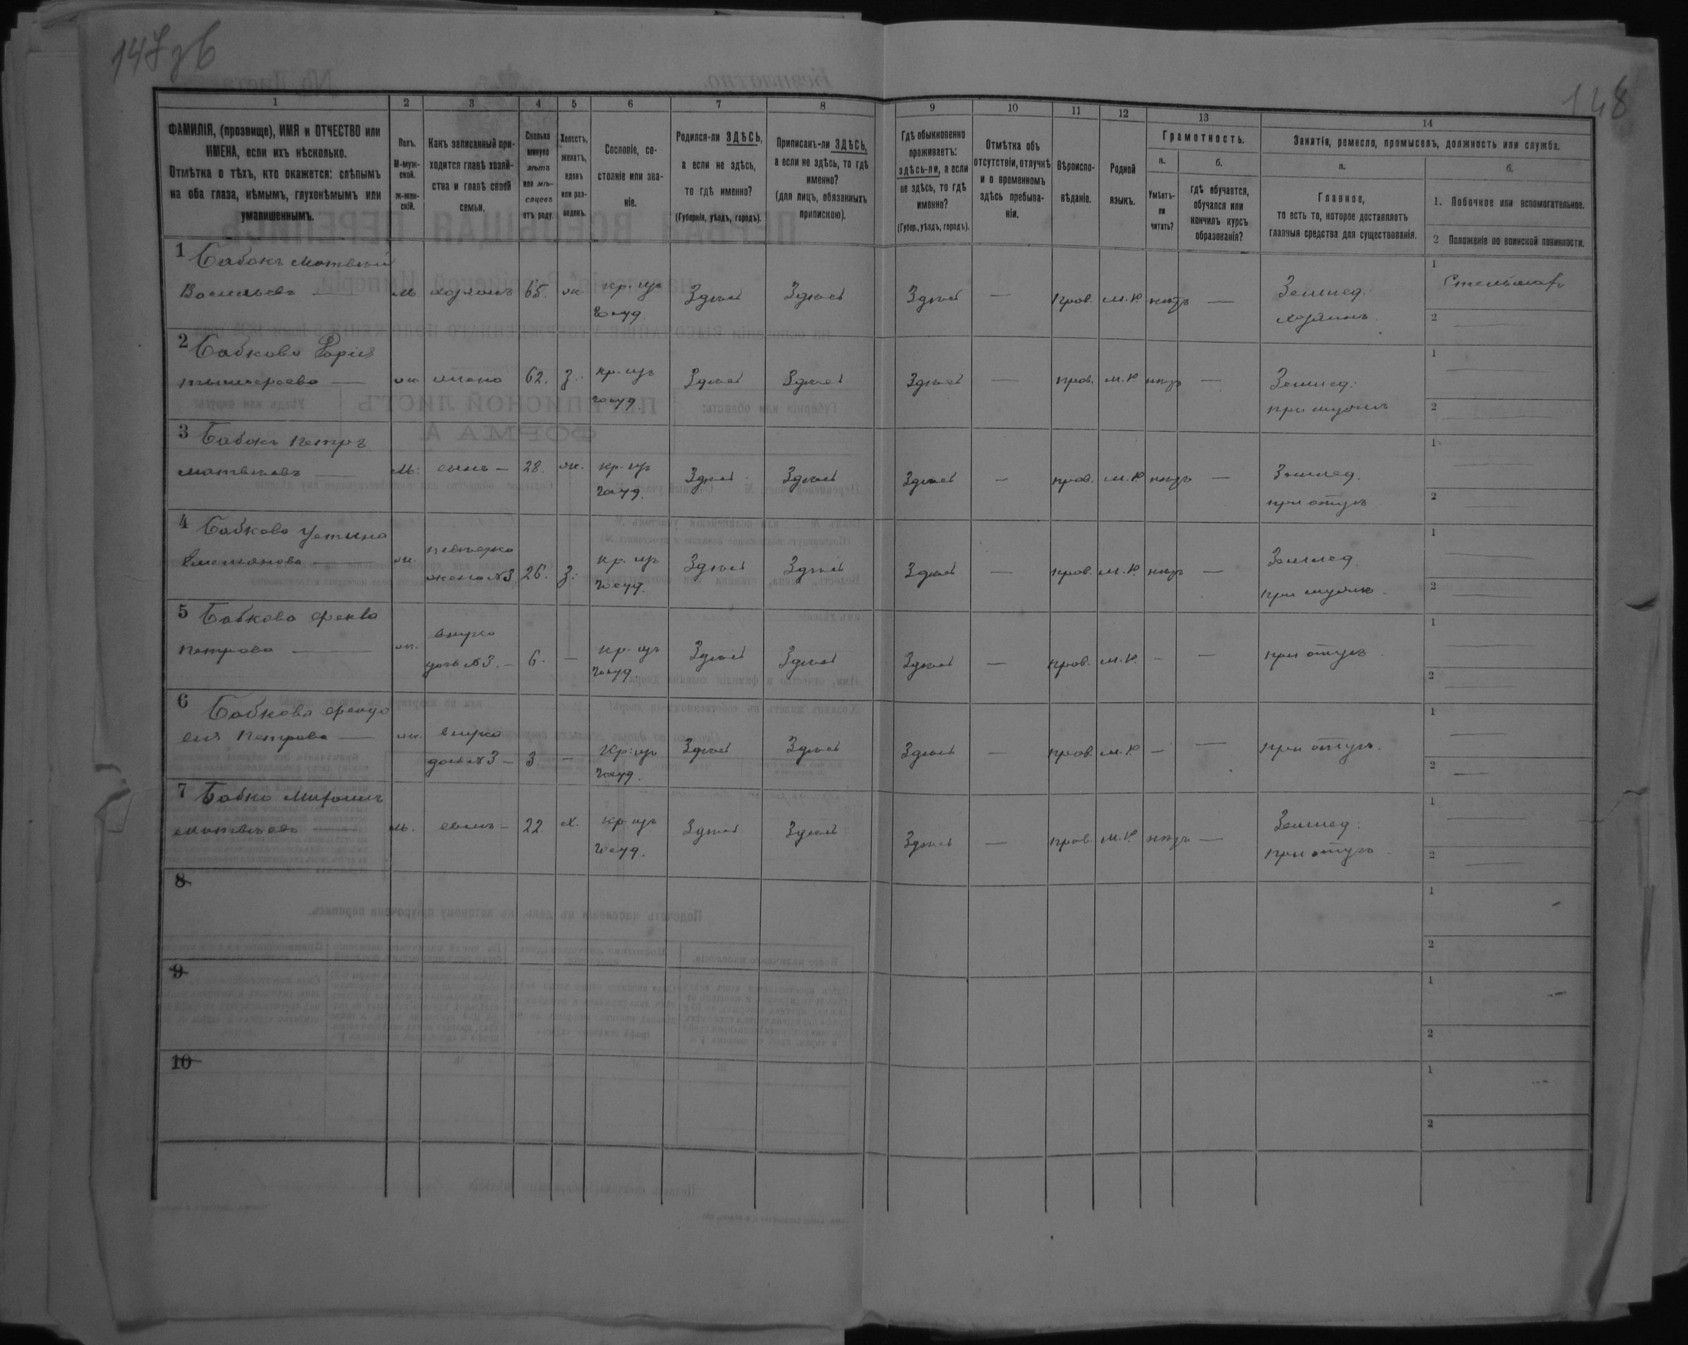 147зв
148
1 2 3 4 5 6 7 8 9 10 11 12 13 14
ФАМИЛІЯ, (прозвище), ИМЯ и ОТЧЕСТВО или
ИМЕНА, если ихъ нѣсколько.
Отмѣтка о тѣхъ, кто окажется: слѣпымъ
на оба глаза, нѣмымъ, глухонѣмымъ или
умалишеннымъ.
Полъ.
М-муж-
ской.
ж-жен-
скій.
Какъ записанный при-
ходится главѣ хозяй-
ства и главѣ своей
семьи.
Сколько
минуло
лѣтъ
или мѣ-
сяцевъ
отъ роду.
Холостъ,
женатъ,
вдовъ
или раз-
веденъ.
Сословіе, со-
стояніе или зва-
ніе.
Родился-ли ЗДѢСЬ,
а если не здѣсь,
то гдѣ именно?
(Губернія, уѣздъ, городъ).
Приписанъ-ли ЗДѢСЬ,
а если не здѣсь, то гдѣ
именно?
(для лицъ, обязанныхъ
припискою).
Гдѣ обыкновенно
проживаетъ:
здѣсь-ли, а если
не здѣсь, то гдѣ
именно?
(Губер., уѣздъ, городъ).
Отмѣтка объ
отсутствіи, отлучкѣ
и о временномъ
здѣсь пребыва-
ніи.
Вѣроиспо-
вѣданіе.
Родной
языкъ.
Грамотность.
а.
Умѣетъ-
ли
читать?
б.
гдѣ обучается,
обучался или
кончилъ курсъ
образованія?
Занятіе, ремесло, промыселъ, должность или служба.
а.
Главное,
то есть то, которое доставляетъ
главныя средства для существованія.
б.
1. Побочное или вспомогательное.
2 Положеніе по воинской повинности.
1 Бабокъ Матвѣй
Васильевъ — м хозяинъ 65. ж кр. изъ госуд. Здѣсь Здѣсь Здѣсь — прав. м.р нѣтъ — Землед. хозяинъ 1 Стельмахъ 2
2 Бабкова
— ж жена 62. з. кр. изъ госуд. Здѣсь Здѣсь Здѣсь — прав. м.р нѣтъ — Землед. при мужѣ 1 2
3 Бабокъ Петръ
Матвѣевъ — м. сынъ — 28. ж. кр. изъ госуд. Здѣсь Здѣсь Здѣсь — прав. м.р нѣтъ — Землед. при отцѣ 1 2
4 Бабкова Устина
— ж. невѣстка жена №3 26. з. кр. изъ госуд. Здѣсь Здѣсь Здѣсь — прав. м.р. нѣтъ — Землед. при мужѣ 1 2
5 Бабкова Фекла
Петрова — ж. внучка дочь №3. — 6. — кр. изъ госуд. Здѣсь Здѣсь Здѣсь — прав. м.р. — — при отцѣ 1 2
6 Бабкова Феодо
сія Петрова — ж. внучка дочь №3 — 3 — кр. изъ госуд. Здѣсь Здѣсь Здѣсь — прав. м.р — — при отцѣ. 1 2
7 Бабко
Матвѣевъ — м. сынъ — 22 х. кр. изъ госуд. Здѣсь Здѣсь Здѣсь — прав. м.р. нѣтъ — Землед. при отцѣ 1 2
8 1 2
9 1 2
10 1 2